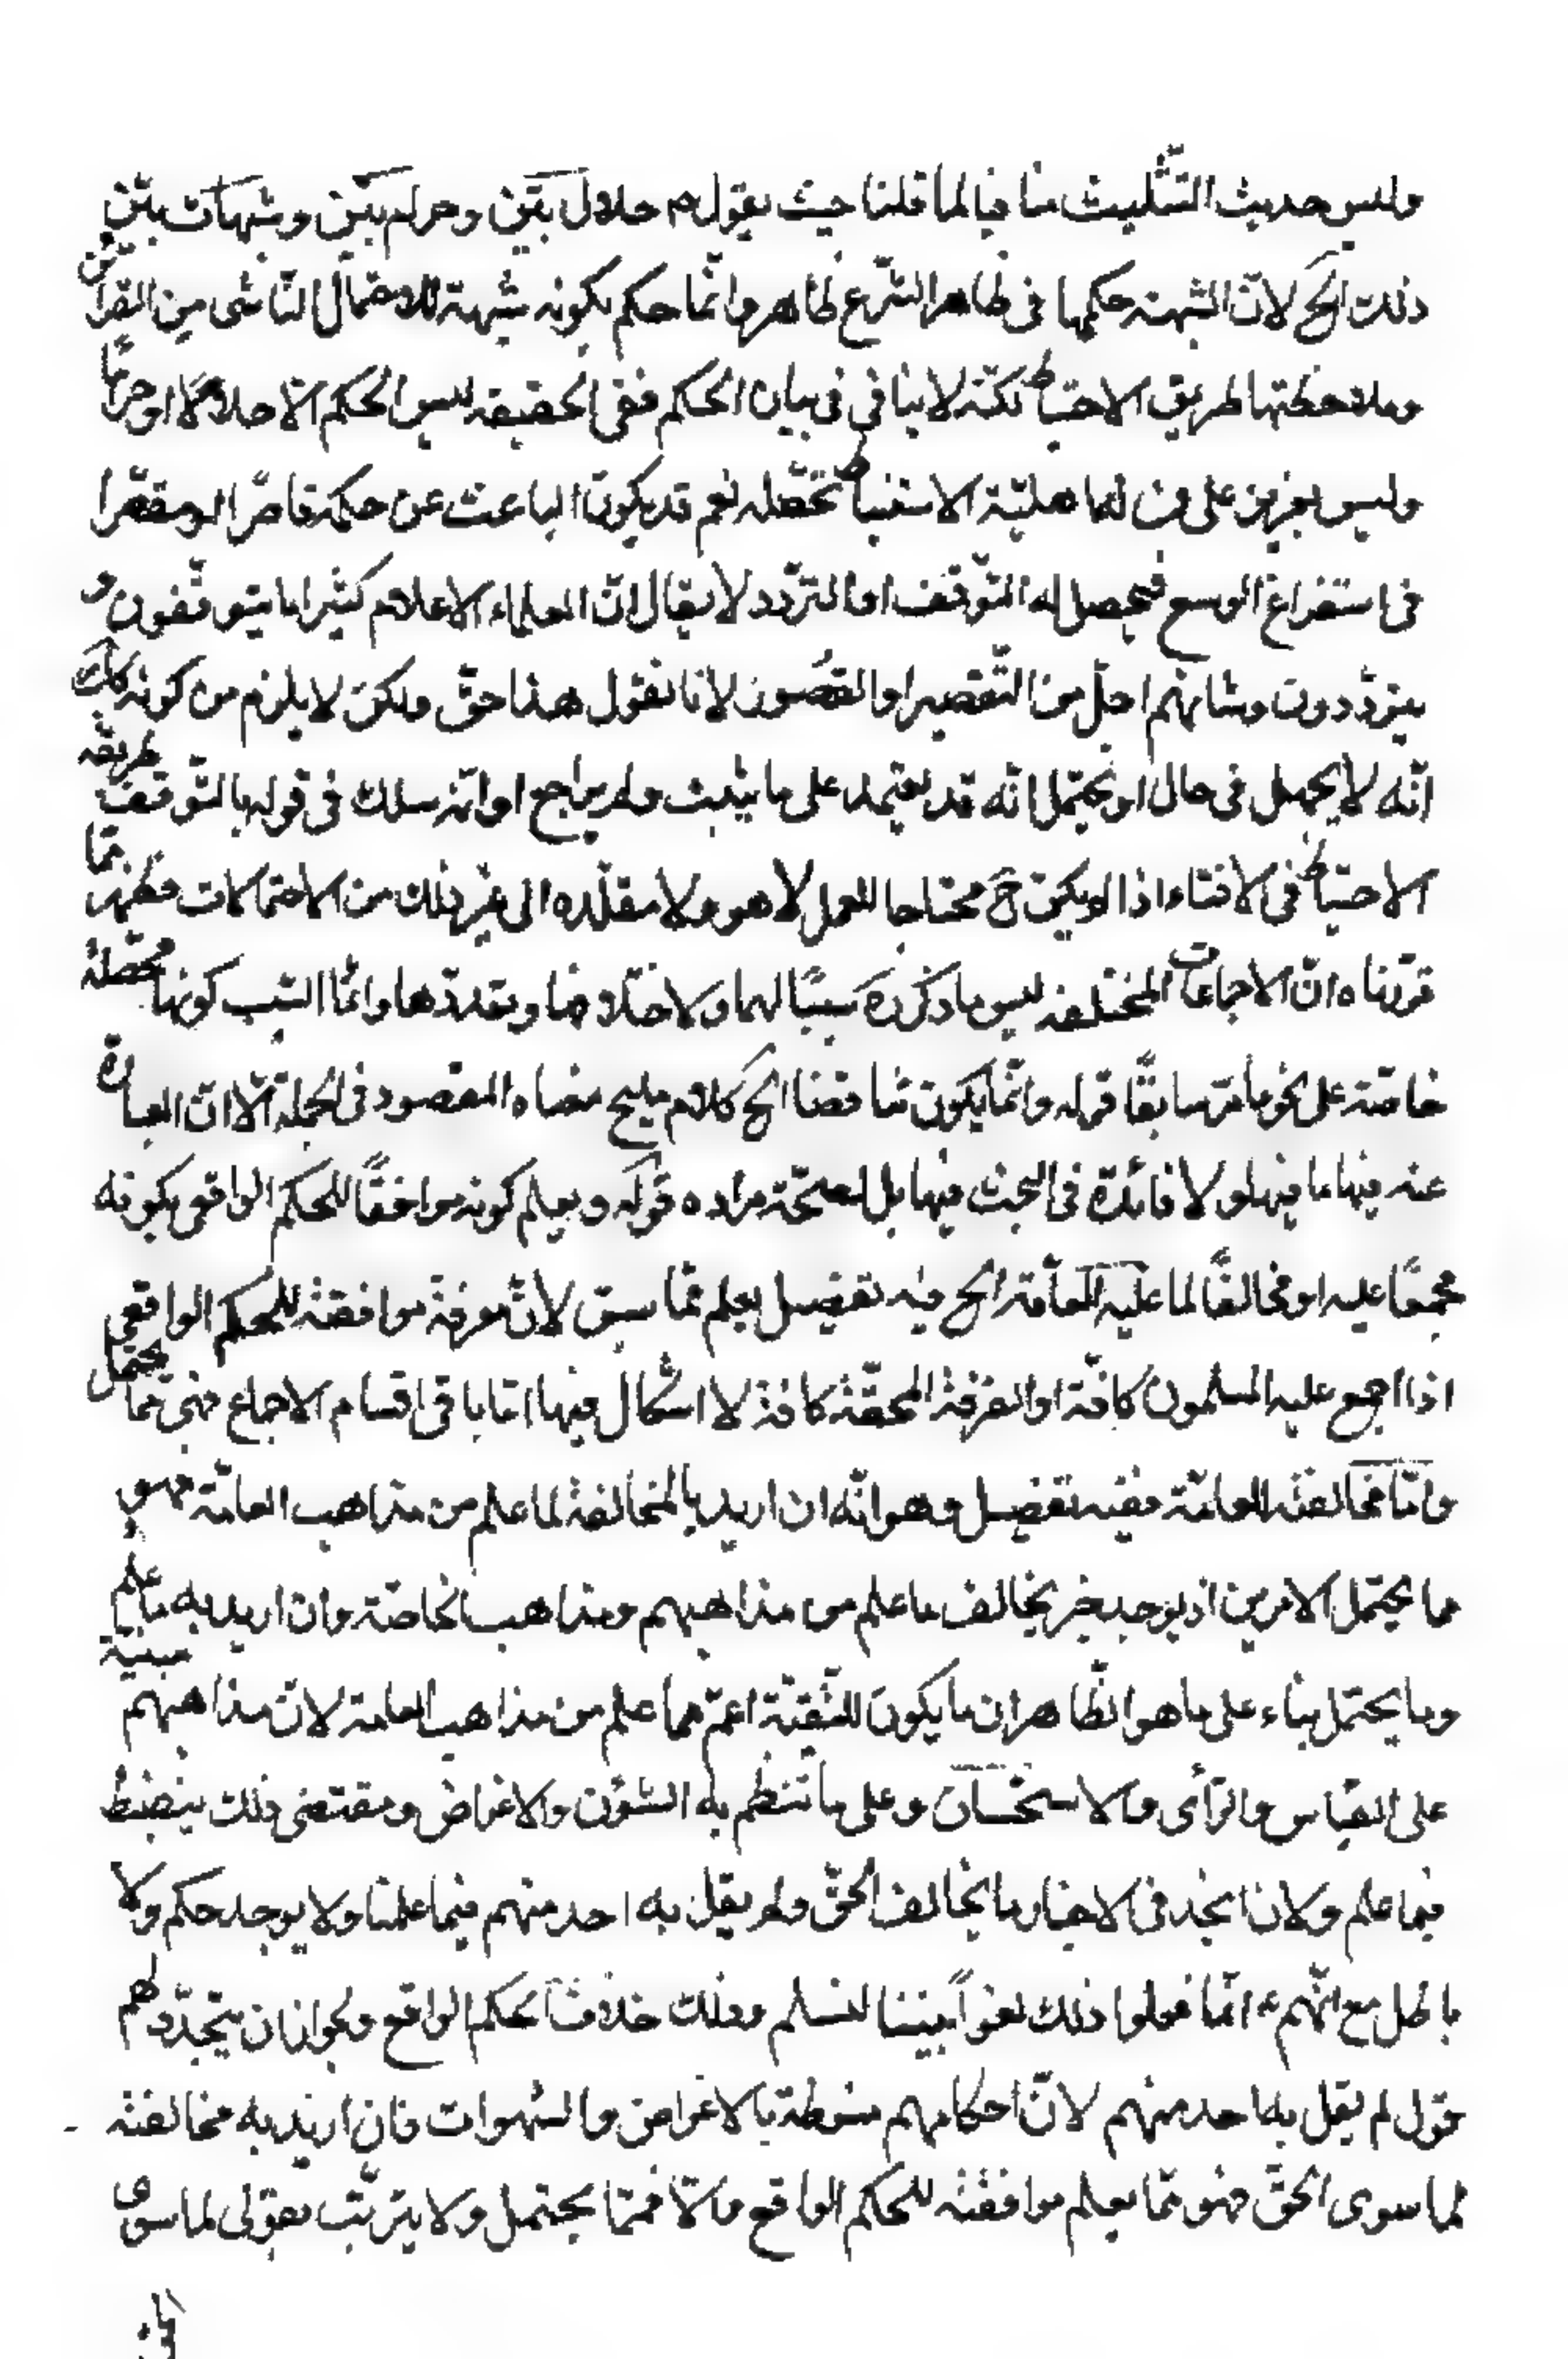 وليس حديث التثليث منافيا لما قلنا حيث يقول م حلال بيّن وحرام بيّن وشبهات بين
ذلك الخ لانّ الشبهة حكمها فى ظاهر الشّرع ظاهر وانّما حكم بكونه شبهة للاحتمال النّاشى من القرائن
وملاحظتها لطريق الاحتياط نكتة لا ينافي فى بيان الحكم ففى الحقيقه ليس الحكم الّا حلالًا او حرامًا
وليس بعزيز على من له اهليّة الاستنباط تحصّله نعم قد يكون الباعث عن حكمه قاصرًا او مقصّرا
فى استفراغ الوسع فيحصل له التّوقف او التردّد لا يقال انّ العلماء الاعلام كثيرا ما يتوقّفون و
يتردّدون وشانهم اجلّ من التّقصير او القصُور لانا نقول هذا حقّ ولكن لا يلزم من كونه كذلك
انّه لا يجهل فى حال او يحتمل انّه قد يعتمد على ما يثبت ولم يراجع او انّه سلك فى قوله بالتّوقف طريقه
الاحتياط فى الافتاء اذا لم يكن ح محتاجا للعمل لا هو ولا مقلّده الى غير ذلك من الاحتمالات فظهر ممّا
قرّرناه انّ الاجماعات المختلفه ليس ما ذكره سببًا لهما ولاختلافها وتعدّدها وانّما السّبب كونها محصّلة
خاصّة على نحو ما مرّ سابقًا قوله وانّما يكون مناقضا الخ كلام مليح معناه المقصود فى الجملة الّا انّ العبارة
عنه فيها ما فيها ولا فائدة فى البحث فيها بل لصحّة مراده قوله ويعلم كونه موافقًا للحكم الواقعى بكونه
مجمعًا عليه او مخالفًا لما عليه العامّة الخ فيه تفصيل يعلم ممّا سبق لانّ معرفة موافقته للحكم الواقعى
اذا اجمع عليه المسلمون كافّة او الفرقة المحقّة كافة لا اشكال فيها امّا باقى اقسام الاجماع فهى ممّا يحتمل
وامّا مخالفته العامّة ففيه تفصيل وهو انّه ان اريد بالمخالفة لما علم من مذاهب العامّة فهو
مما يحتمل الامرين اذ يوجد خبر يخالف ما علم من مذاهبهم ومذاهب الخاصّة وان اريد به ما علم
وما يحتمل بناء على ما هو الظّاهر ان ما يكون للتّقيّة اعمّ مما علم من مذاهب العامة لانّ مذاهبهم مبنيّة
على القياس والرّأى والاستحسان وعلى ما تنتظم به الشؤن والاغراض ومقتضى ذلك ينضبط
فيما علم ولانا نجد فى الاخبار ما يخالف الحقّ ولم يقل به احد منهم فيما علمنا ولا يوجد حكم ولا
باطل مع انّهم ع انّما فعلوا ذلك بيننا لنسلم وذلك خلاف الحكم الواقع ولجواز ان يتجدّد لهم
قول لم يقل به احد منهم لانّ احكامهم منوطة بالاغراض والشهوات فان اريد به مخالفته
لما سوى الحقّ فهو ممّا يعلم موافقته للحكم الواقع والّا فممّا يحتمل ولا يترتّب بقولى لما سوى